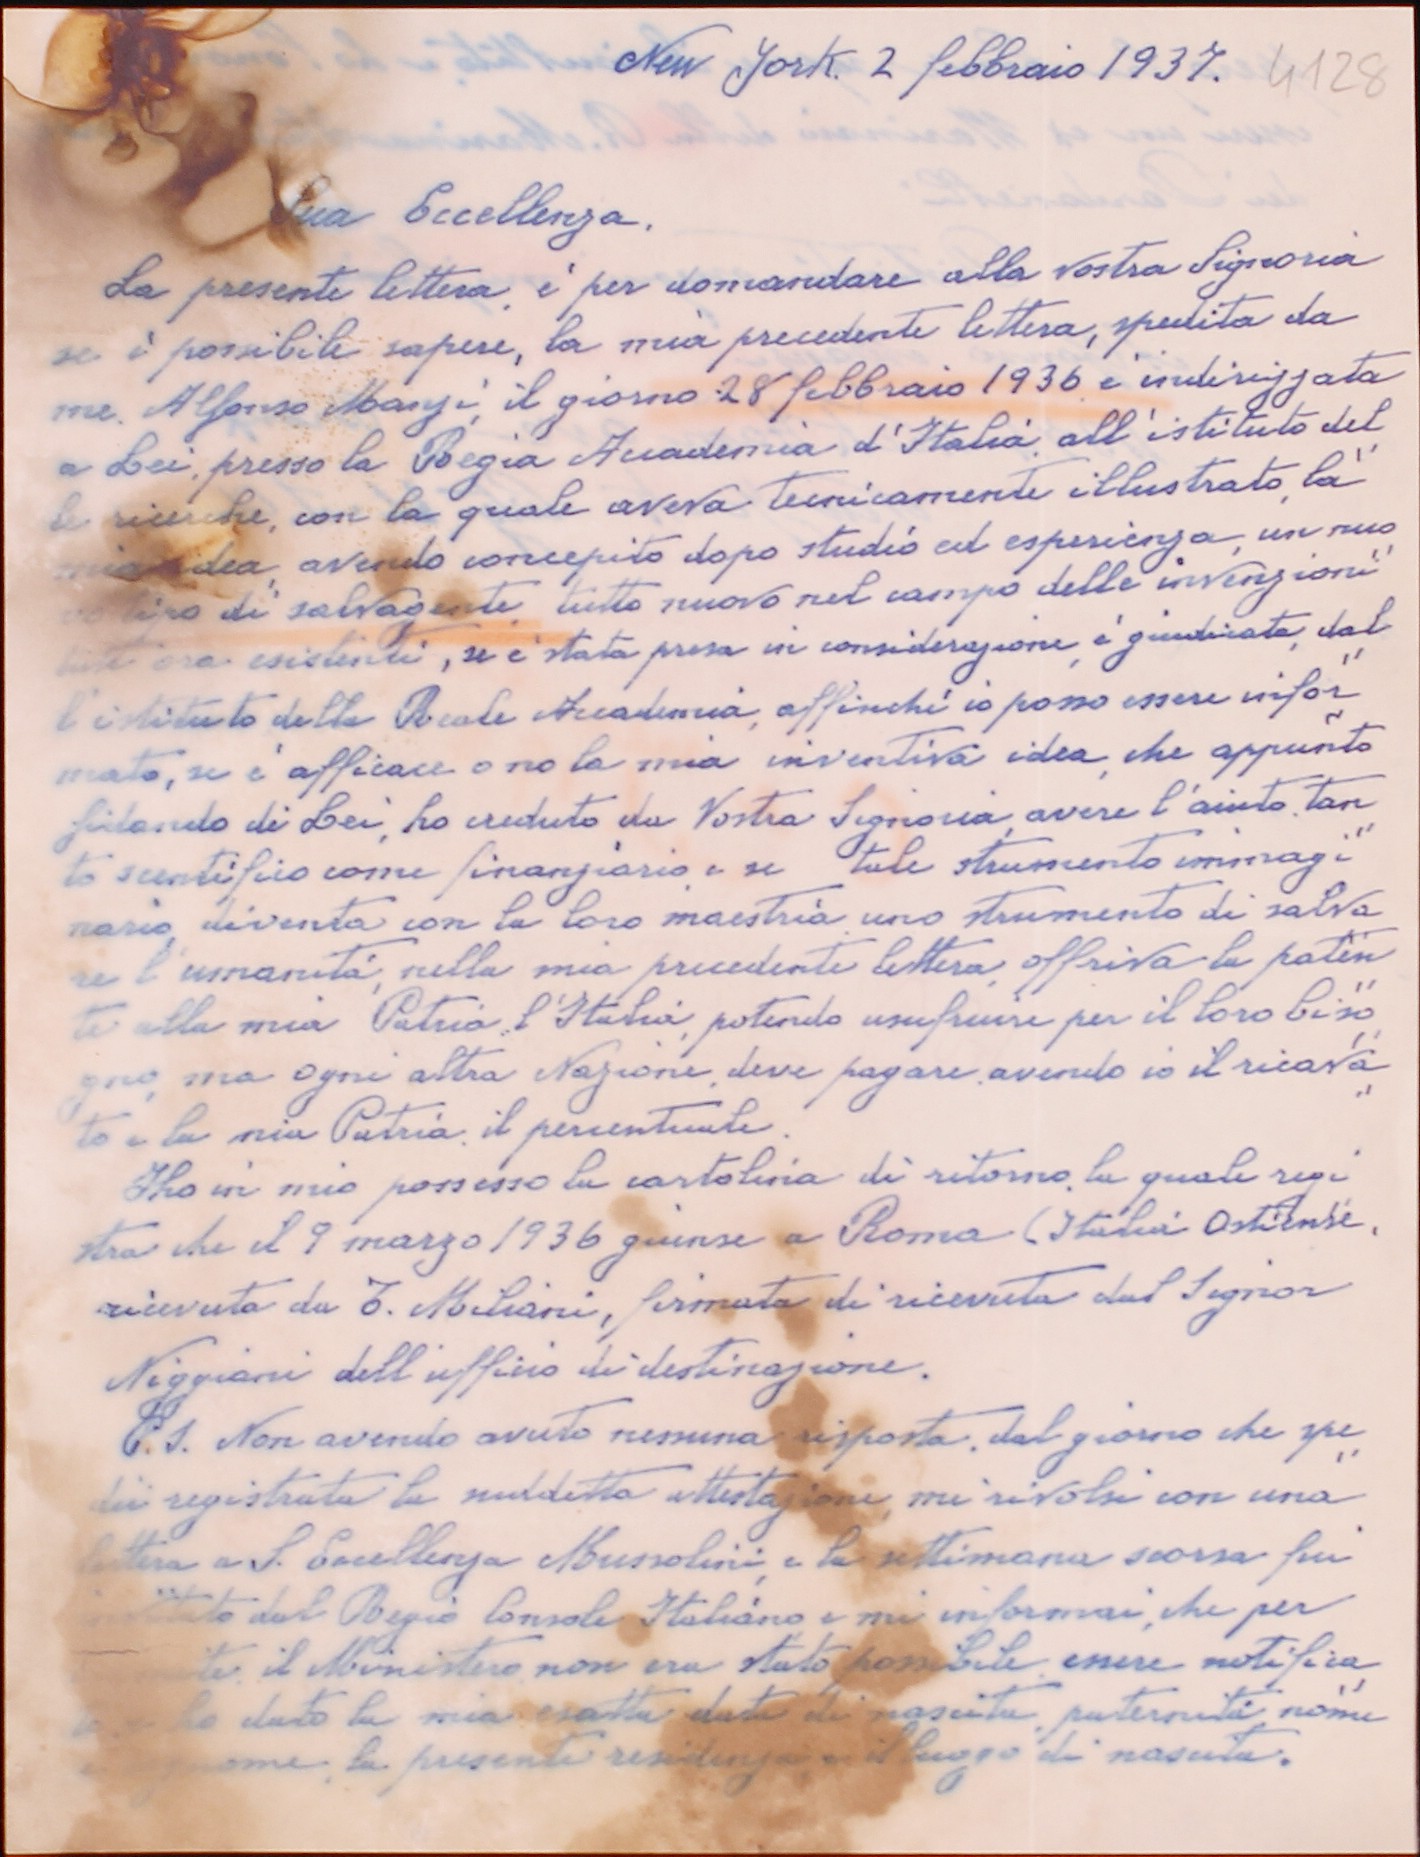 New York. 2 febbraio 1937. 4128
Sua Eccellenza.
La presente lettera, è per domandare alla vostra Signoria
se è possibile sapere, la mia precedente lettera, spedita da
me. Alfonso Manzi, il giorno 28 febbraio 1936 e indirizzata
a Lei, presso la Regia Accademia d'Italia, all'istituto del
le ricerche, con la quale aveva tecnicamente illustrato, la
mia idea, avendo concepito dopo studio ed esperienza, un nuo
vo tipo di salvagente, tutto nuovo nel campo delle invenzioni
ora esistenti, se è stata presa in considerazione, e giudicata, dal
l'istituto della Reale Accademia, affinché io posso essere infor
mato, se è afficace o no la mia inventiva idea, che appunto
fidando di Lei, ho creduto da Vostra Signoria, avere l'aiuto, tan
to scentifico come finanziario, e se tale strumento immagi
nario, diventa con la loro maestria uno strumento di salva
re l'umanità, nella mia precedente lettera, offriva la paten
te alla mia Patria, l'Italia, potendo usufruire per il loro biso
gno, ma ogni altra Nazione, deve pagare, avendo io il ricava
to e la mia Patria, il percentuale.
Ho in mio possesso la cartolina di ritorno, la quale regi
stra che il 9 marzo 1936 giunse a Roma (Italia Ostiense,
ricevuta da T. Miliani, firmata di ricevuta dal Signor
Niggiani dell'ufficio di destinazione.
P.S. Non avendo avuto nessuna risposta, dal giorno che spe
dii registrata la suddetta attestazione, mi rivolsi con una
lettera a S. Eccellenza Mussolini, e la settimana scorsa fui
dal Regio Console Italiano, e mi informai, che per
il Ministero non era stato possibile essere notifica
to, e ho dato la mia esatta data di nascita, paternità nome
e cognome, la presente residenza, e il luogo di nascita.